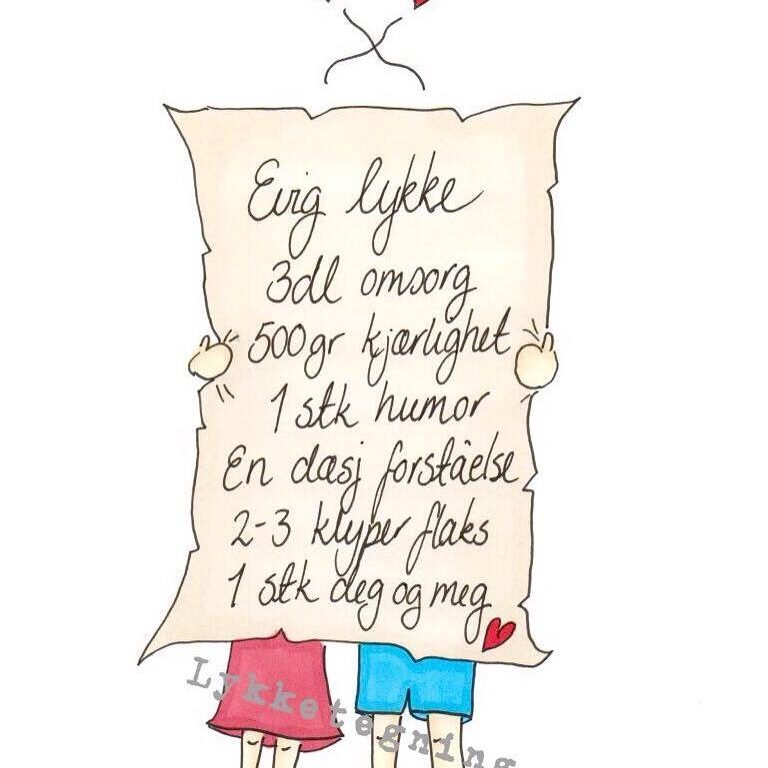 Evig lykke
3dl omsorg
500gr kjærlighet
1 stk humor
En dæsj forståelse
2-3 klyper flaks
1 stk deg og meg
Lykketegning